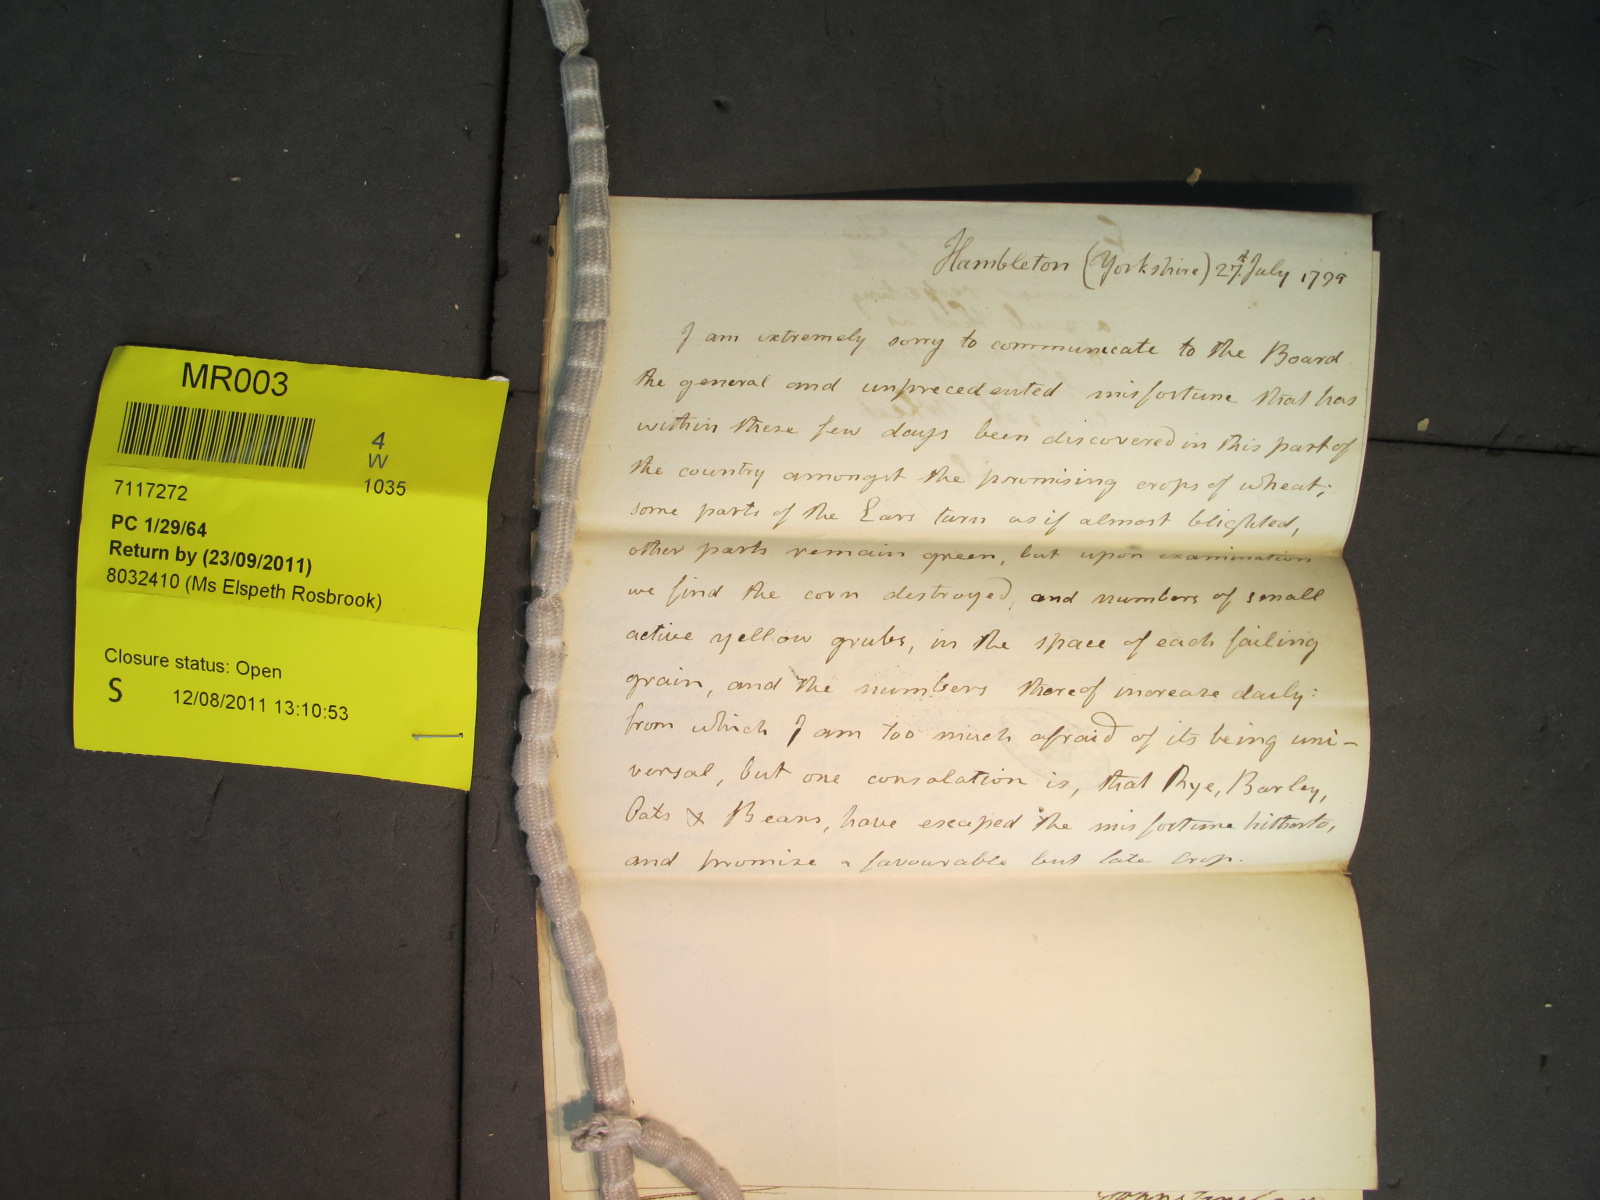 MR003
4
W
1035
7117272
PC 1/29/64
Return by (23/09/2011)
8032410 (Ms Elspeth Rosbrook)
Closure status: Open
S 12/08/2011 13:10:53
Hambleton (Yorkshire) 27th July 1799
I am extremely sorry to communicate to the Board
the general and unprecedented misfortune that has
within these few days been discovered in this part of
the country amongst the promising crops of wheat;
some parts of the Ears turn as if almost blighted,
other parts remain green, but upon examination
we find the corn destroyed, and numbers of small
active yellow grubs, in the space of each failing
grain, and the numbers thereof increase daily:
from which I am too much afraid of its being uni-
versal, but one consolation is, that Rye, Barley,
Oats & Beans, have escaped the misfortune hitherto,
and promise a favourable but late Crop.